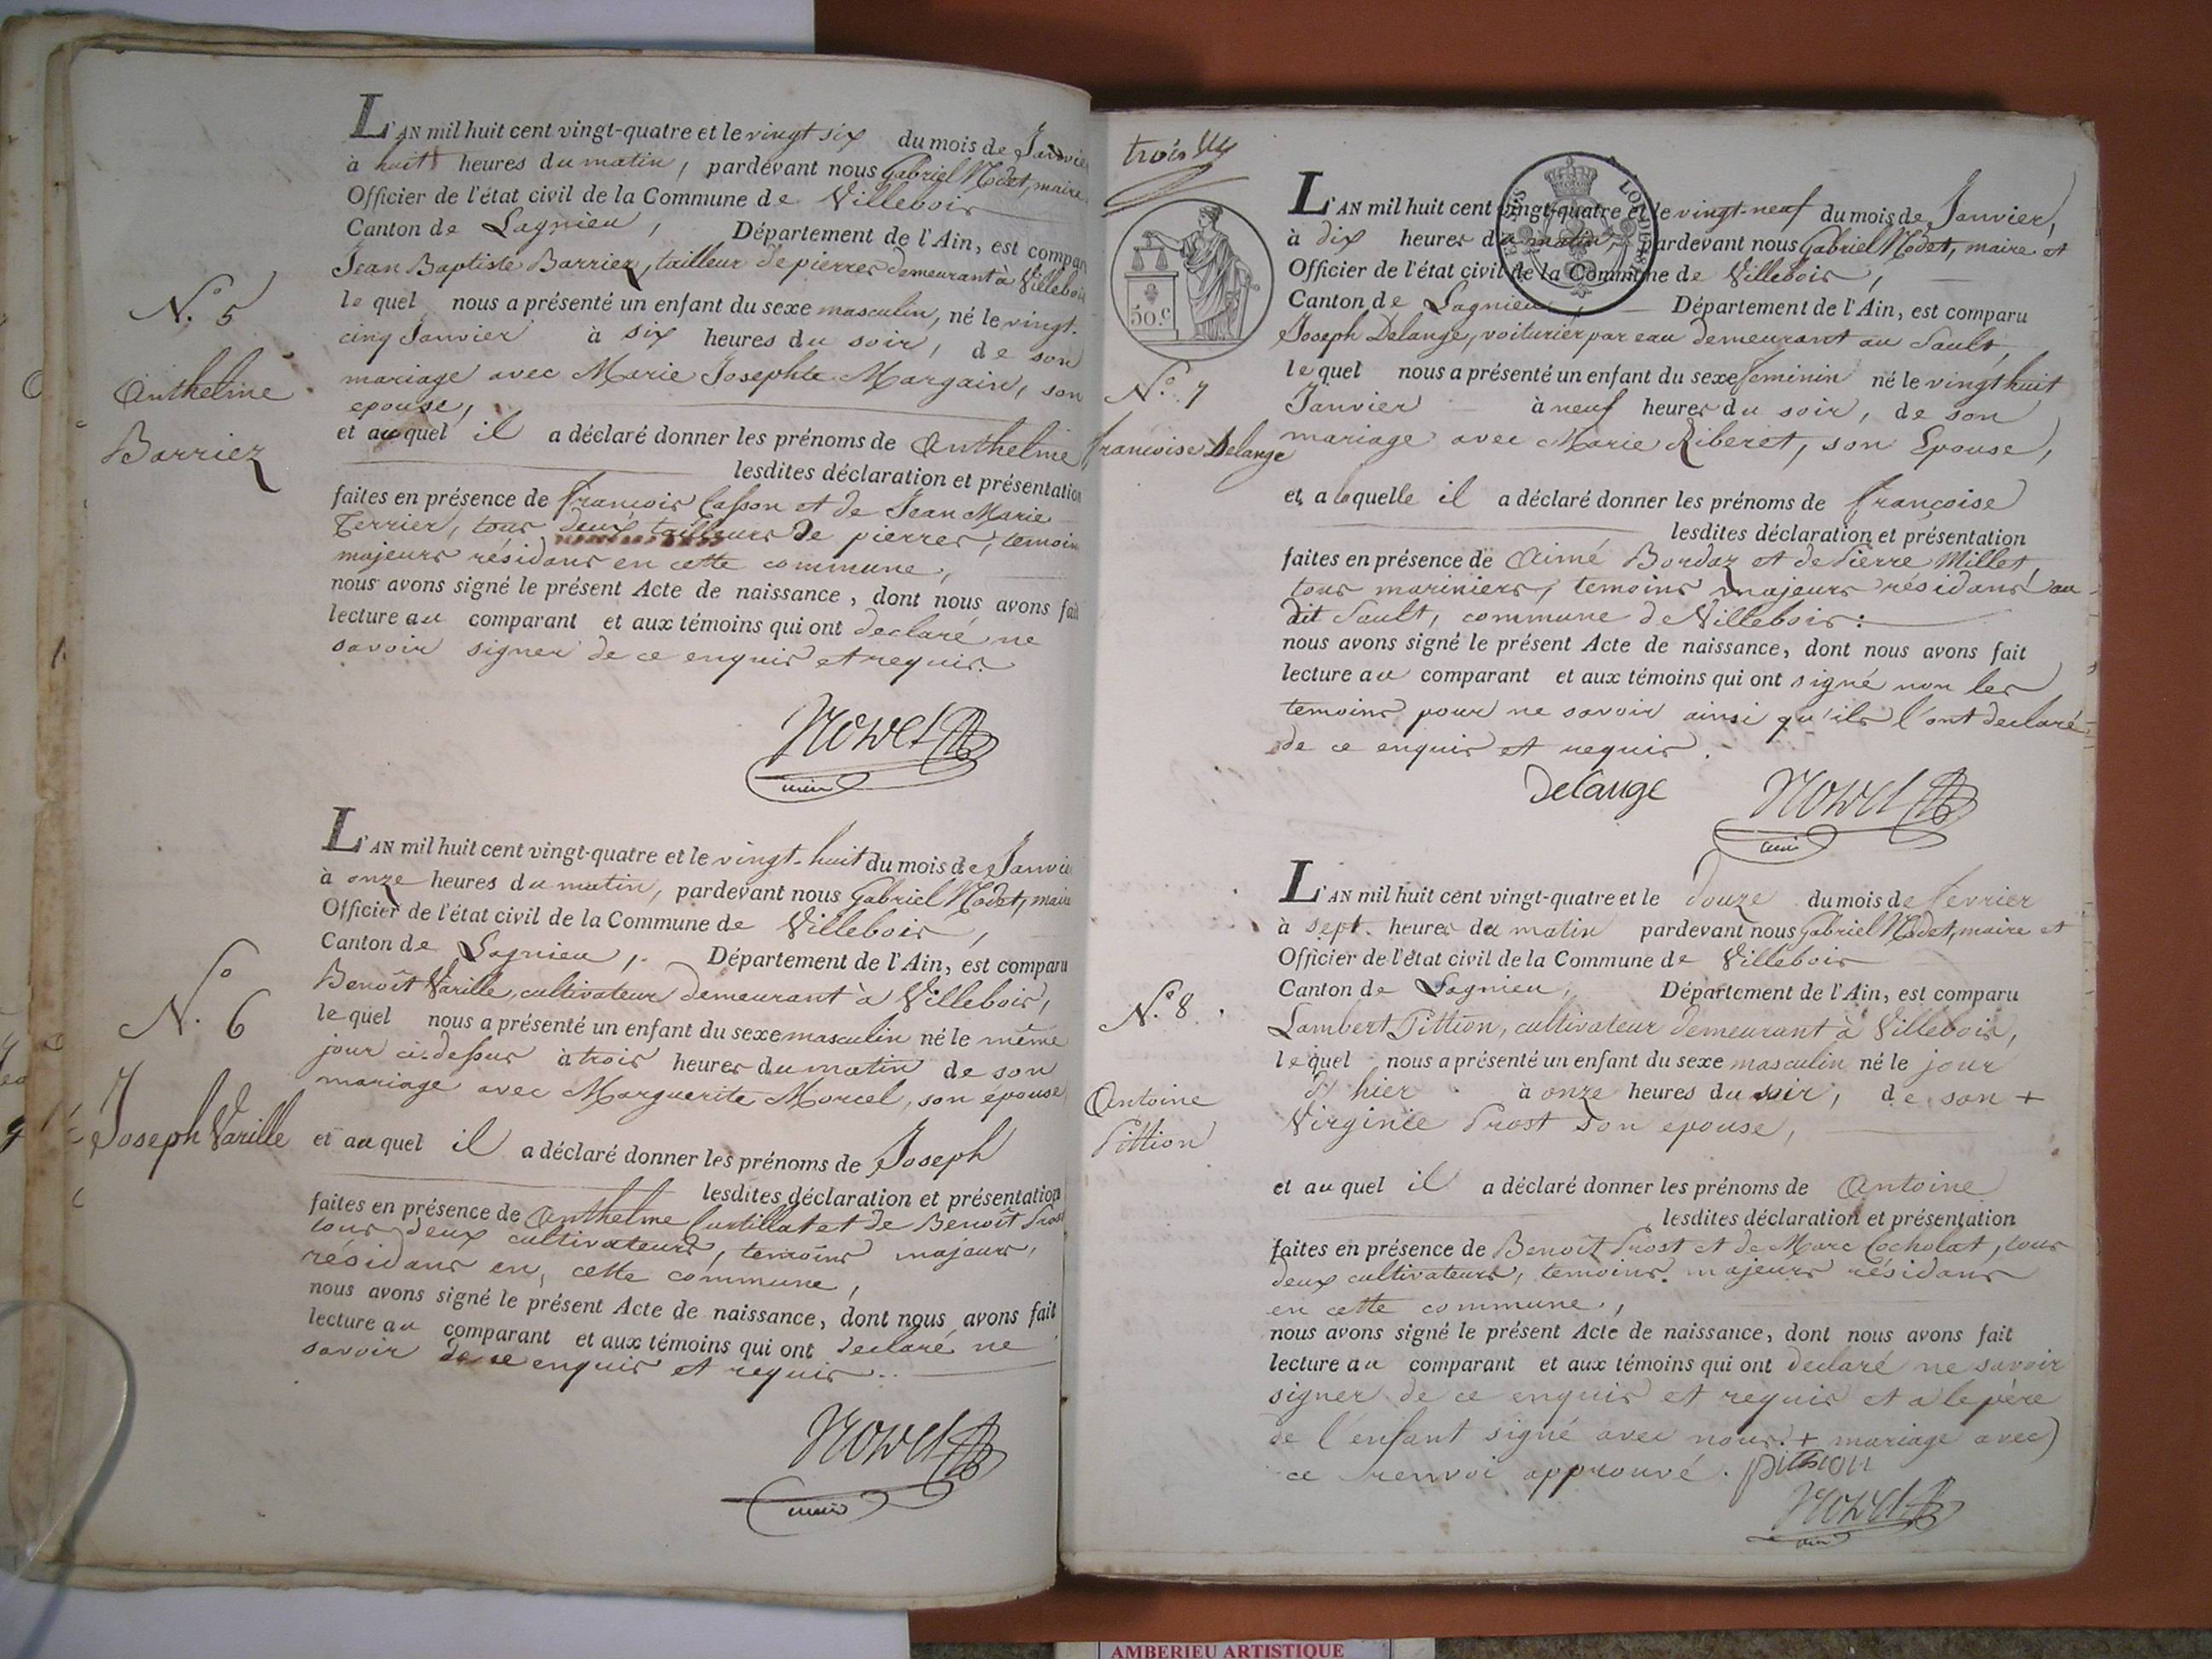 L'AN mil huit cent vingt-quatre et le vingt six du mois de Janvier
à huit heures du matin, pardevant nous Gabriel Nodet, maire
Officier de l'état civil de la Commune de Villebois
Canton de Lagnieu, Département de l'Ain, est compar
Jean Baptiste Barriez, tailleur de pierres demeurant à Villebois
le quel nous a présenté un enfant du sexe masculin, né le vingt-
cinq Janvier à six heures du soir, de son
mariage avec Marie Josephte Margain, son
epouse,
et au quel il a déclaré donner les prénoms de Anthelme
lesdites déclaration et présentation
faites en présence de francois Casson et de Jean Marie
Terrier, tous deux tailleurs de pierres, temoins
majeurs résidans en cette commune,
nous avons signé le présent Acte de naissance, dont nous avons fait
lecture au comparant et aux témoins qui ont declaré ne
savoir signer de ce enquis et requis.
Nodet
maire
N.o 5
Anthelme
Barriez
L'AN mil huit cent vingt-quatre et le vingt-huit du mois de Janvie
à onze heures du matin, pardevant nous Gabriel Nodet, maire
Officier de l'état civil de la Commune de Villebois,
Canton de Lagnieu, Département de l'Ain, est comparu
Benoît Varille, cultivateur demeurant à Villebois,
le quel nous a présenté un enfant du sexe masculin né le même
jour ci-dessus à trois heures du matin de son
mariage avec Marguerite Morcel, son épouse
et au quel il a déclaré donner les prénoms de Joseph
lesdites déclaration et présentation
faites en présence de Anthelme Curtillat et de Benoît Prost
tous deux cultivateurs, temoins majeurs,
résidans en cette commune,
nous avons signé le présent Acte de naissance, dont nous avons fait
lecture au comparant et aux témoins qui ont declaré ne
savoir de ce enquis et requis.
Nodet
maire
N.o 6
Joseph Varille
trois
50.c
L'AN mil huit cent vingt-quatre et le vingt-neuf du mois de Janvier,
à dix heures du matin, pardevant nous Gabriel Nodet, maire et
Officier de l'état civil de la Commune de Villebois,
Canton de Lagnieu, Département de l'Ain, est comparu
Joseph Delange, voiturier par eau demeurant au Sault,
le quel nous a présenté un enfant du sexe feminin né le vingt huit
Janvier à neuf heures du soir, de son
mariage avec Marie Riberet, son Epouse,
et a laquelle il a déclaré donner les prénoms de francoise
lesdites déclaration et présentation
faites en présence de Aimé Bordaz et de Pierre Millet,
tous mariniers, temoins majeurs résidans au
dit Sault, commune de Villebois:
nous avons signé le présent Acte de naissance, dont nous avons fait
lecture au comparant et aux témoins qui ont signé non les
temoins pour ne savoir ainsi qu'ils l'ont declaré
de ce enquis et requis.
Delange Nodet
maire
N.o 7
francoise Delange
L'AN mil huit cent vingt-quatre et le douze du mois de fevrier
à sept heures du matin pardevant nous Gabriel Nodet, maire et
Officier de l'état civil de la Commune de Villebois
Canton de Lagnieu, Département de l'Ain, est comparu
Lambert Pittion, cultivateur demeurant à Villebois,
le quel nous a présenté un enfant du sexe masculin né le jour
d'hier à onze heures du soir, de son +
Virginie Prost son epouse,
et au quel il a déclaré donner les prénoms de Antoine
lesdites déclaration et présentation
faites en présence de Benoît Prost et de Marc Cocholat, tous
deux cultivateurs, temoins majeurs résidans
en cette commune,
nous avons signé le présent Acte de naissance, dont nous avons fait
lecture au comparant et aux témoins qui ont declaré ne savoir
signer de ce enquis et requis et a le père
de l'enfant signé avec nous. + mariage avec
ce renvoi approuvé. pittion
Nodet
maire
N.o 8
Antoine
Pittion
AMBERIEU ARTISTIQUE